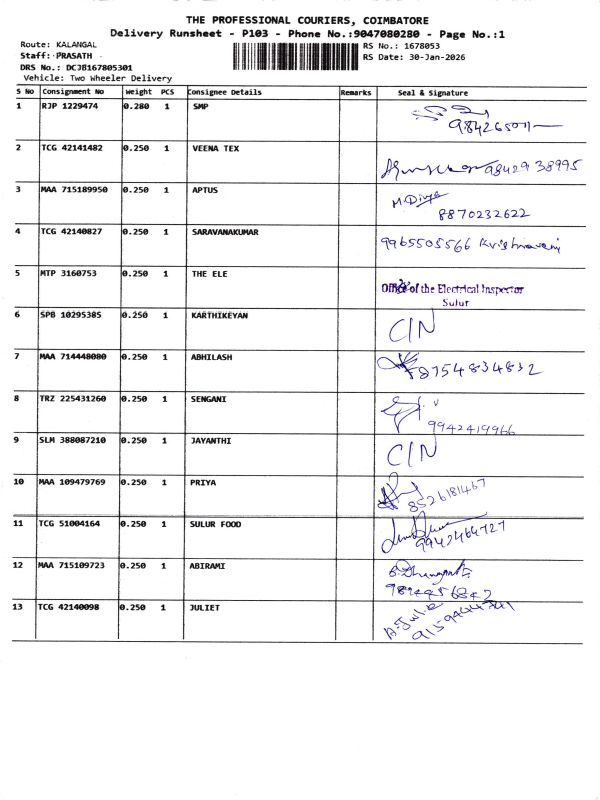 THE PROFESSIONAL COURIERS, COIMBATORE
Delivery Runsheet - P103 - Phone No.:9047080280 - Page No.:1
Route: KALANGAL
Staff: PRASATH
DRS No.: DCJB167805301
Vehicle: Two Wheeler Delivery
RS No.: 1678053
RS Date: 30-Jan-2026
S No Consignment No Weight PCS Consignee Details Remarks Seal & Signature
1 RJP 1229474 0.280 1 SMP
2 TCG 42141482 0.250 1 VEENA TEX 98429 38995
3 MAA 715189950 0.250 1 APTUS M.Divya
8870232622
4 TCG 42140827 0.250 1 SARAVANAKUMAR 9965505566 Krishnaveni
5 MTP 3160753 0.250 1 THE ELE Office of the Electrical Inspector
Sulur
6 SPB 10295385 0.250 1 KARTHIKEYAN C/N
7 MAA 714448080 0.250 1 ABHILASH 8754834832
8 TRZ 225431260 0.250 1 SENGANI
9942419966
9 SLM 388087210 0.250 1 JAYANTHI C/N
10 MAA 109479769 0.250 1 PRIYA 8526181467
11 TCG 51004164 0.250 1 SULUR FOOD
9942464727
12 MAA 715109723 0.250 1 ABIRAMI
13 TCG 42140098 0.250 1 JULIET A.Julie